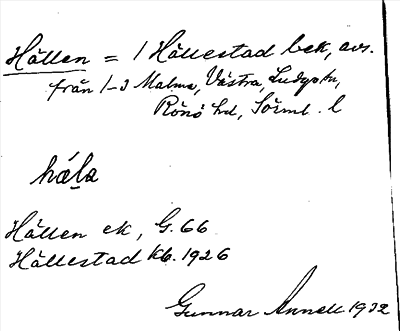 Hällen = 1 Hällestad bek, avs.
från 1-3 Malma, Västra, Ludgokn,
Rönö hd, Sörml. l
hǽla
Hällen ek, G.66
Hällestad Kb. 1926
Gunnar Annell 1932